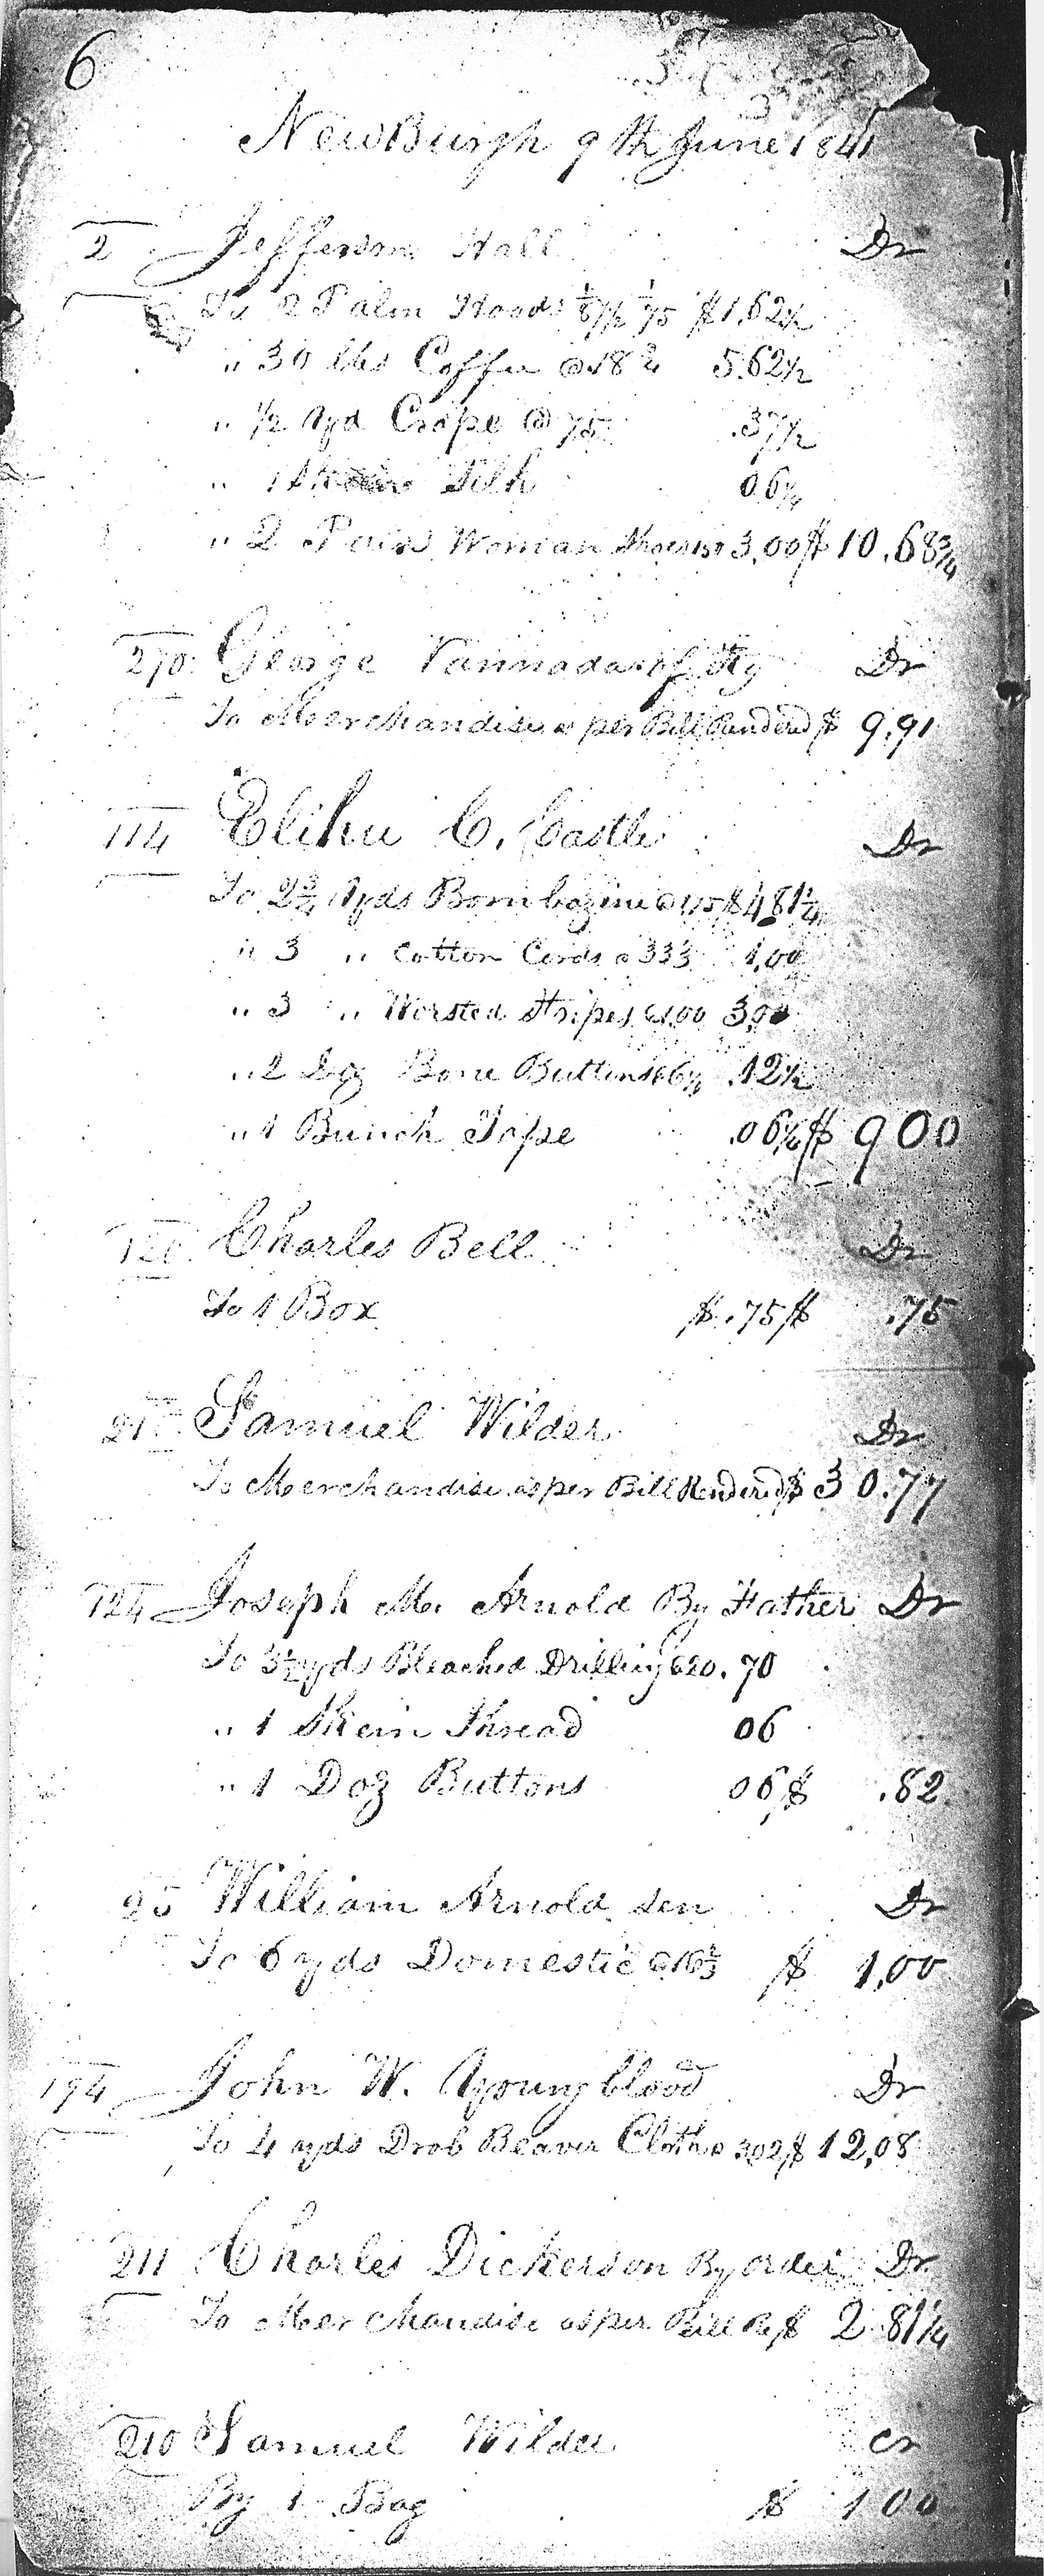 6
NewBurgh 9th June 1841
2 Jefferson Hall Dr
To 2 Palm Hoods 1/87½ 1/75 $1.62½
" 30 lbs Coffee @ 18¾ 5.62½
" ½ Yd Crape @ 75 .37½
" 1 Silk 06¼
" 2 Pair Woman Shoes 150 3.00 $ 10.68¾
270 George Vannada of Ky Dr
To Meerchandise as per Bill Rendered $ 9.91
114 Elihu C. Castle Dr
To 2¾ Yds Bombazine @ 175 $ 4.81¼
" 3 " Cotton Cords @ 33⅓ 1,00
" 3 " Worsted Stripes @ 1,00 3,00
" 2 Dz Bone Buttens @ 6¼ .12½
" 1 Bunch Tape .06¼ $ 900
Charles Bell Dr
To 1 Box $ .75 $ .75
210 Samuel Wilder Dr
To Meerchandise as per Bill Rendered $ 30.77
124 Joseph M. Arnold By Father Dr
To 3½ yds Bleached Drilling @ 20 .70
" 1 Skein Thread 06
" 1 Doz Buttons 06 $ .82
95 William Arnold sen Dr
To 6 yds Domestic @ 16⅔ $ 1,00
194 John W. Youngblood Dr
To 4 yds Drab Beaver Cloth @ 302 $ 12,08
211 Charles Dickerson By order Dr
To Meerchandise as per Bill Re $ 2.81¼
210 Samuel Wilder Cr
By 1 Bag $ 1 00